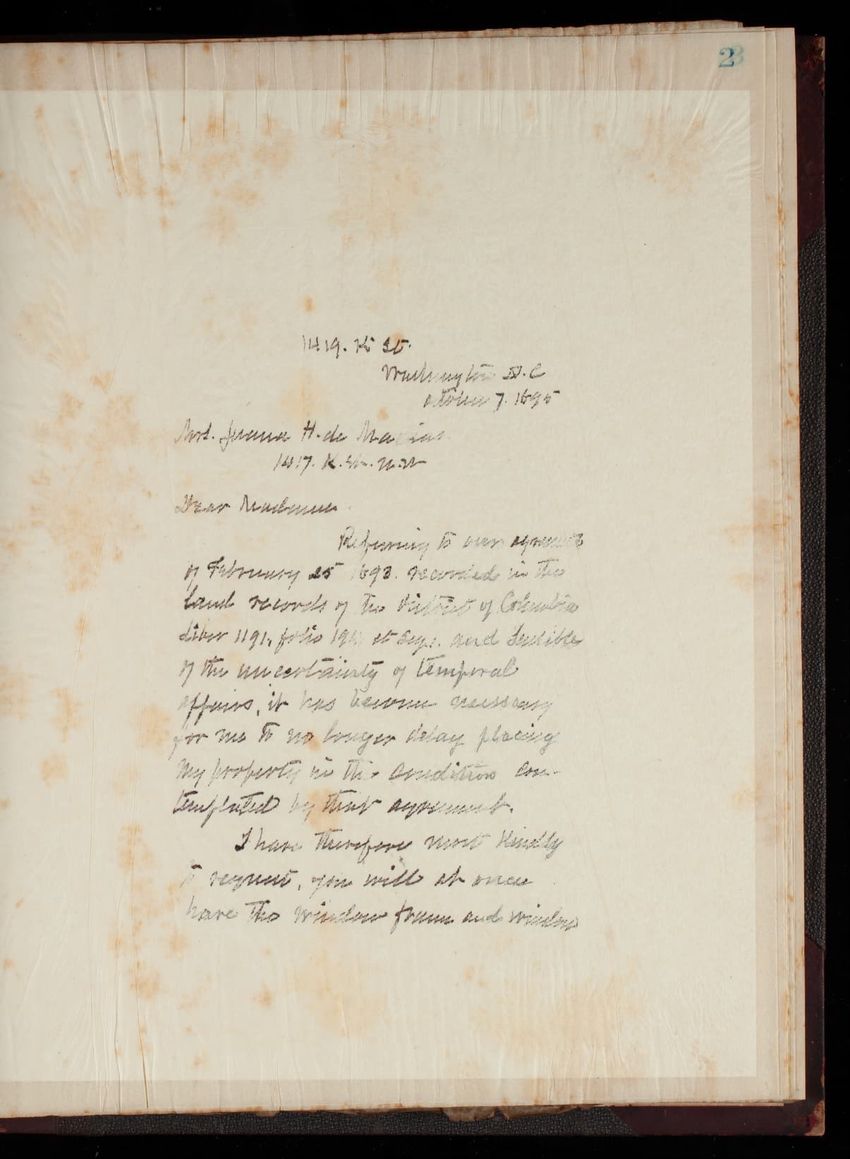 23
1419. K St.
Washington D.C
October 7. 1895
Mrs. Juana H. de Macias
1417. K. St. N.W
Dear Madame.
Referring to our agreement
of February 25 1893. recorded in the
land records of the District of Columbia
Liber 1191, folio et seq. and sensible
of the uncertainty of temporal
affairs, it has become necessary
for me to no longer delay placing
my property in the condition con-
templated by that agreement.
I have therefore most kindly
to request, you will at once
have the window frame and window